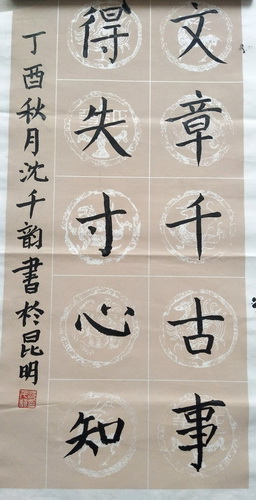 文章千古事
得失寸心知
丁酉秋月沈千韵书於昆明